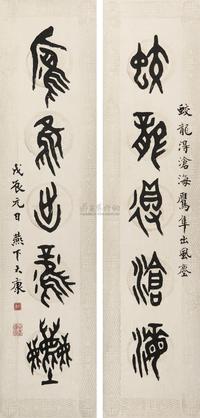 蛟龍得滄海
鷹隼出風塵
蛟龍得滄海鷹隼出風塵
戊辰元日燕下大康